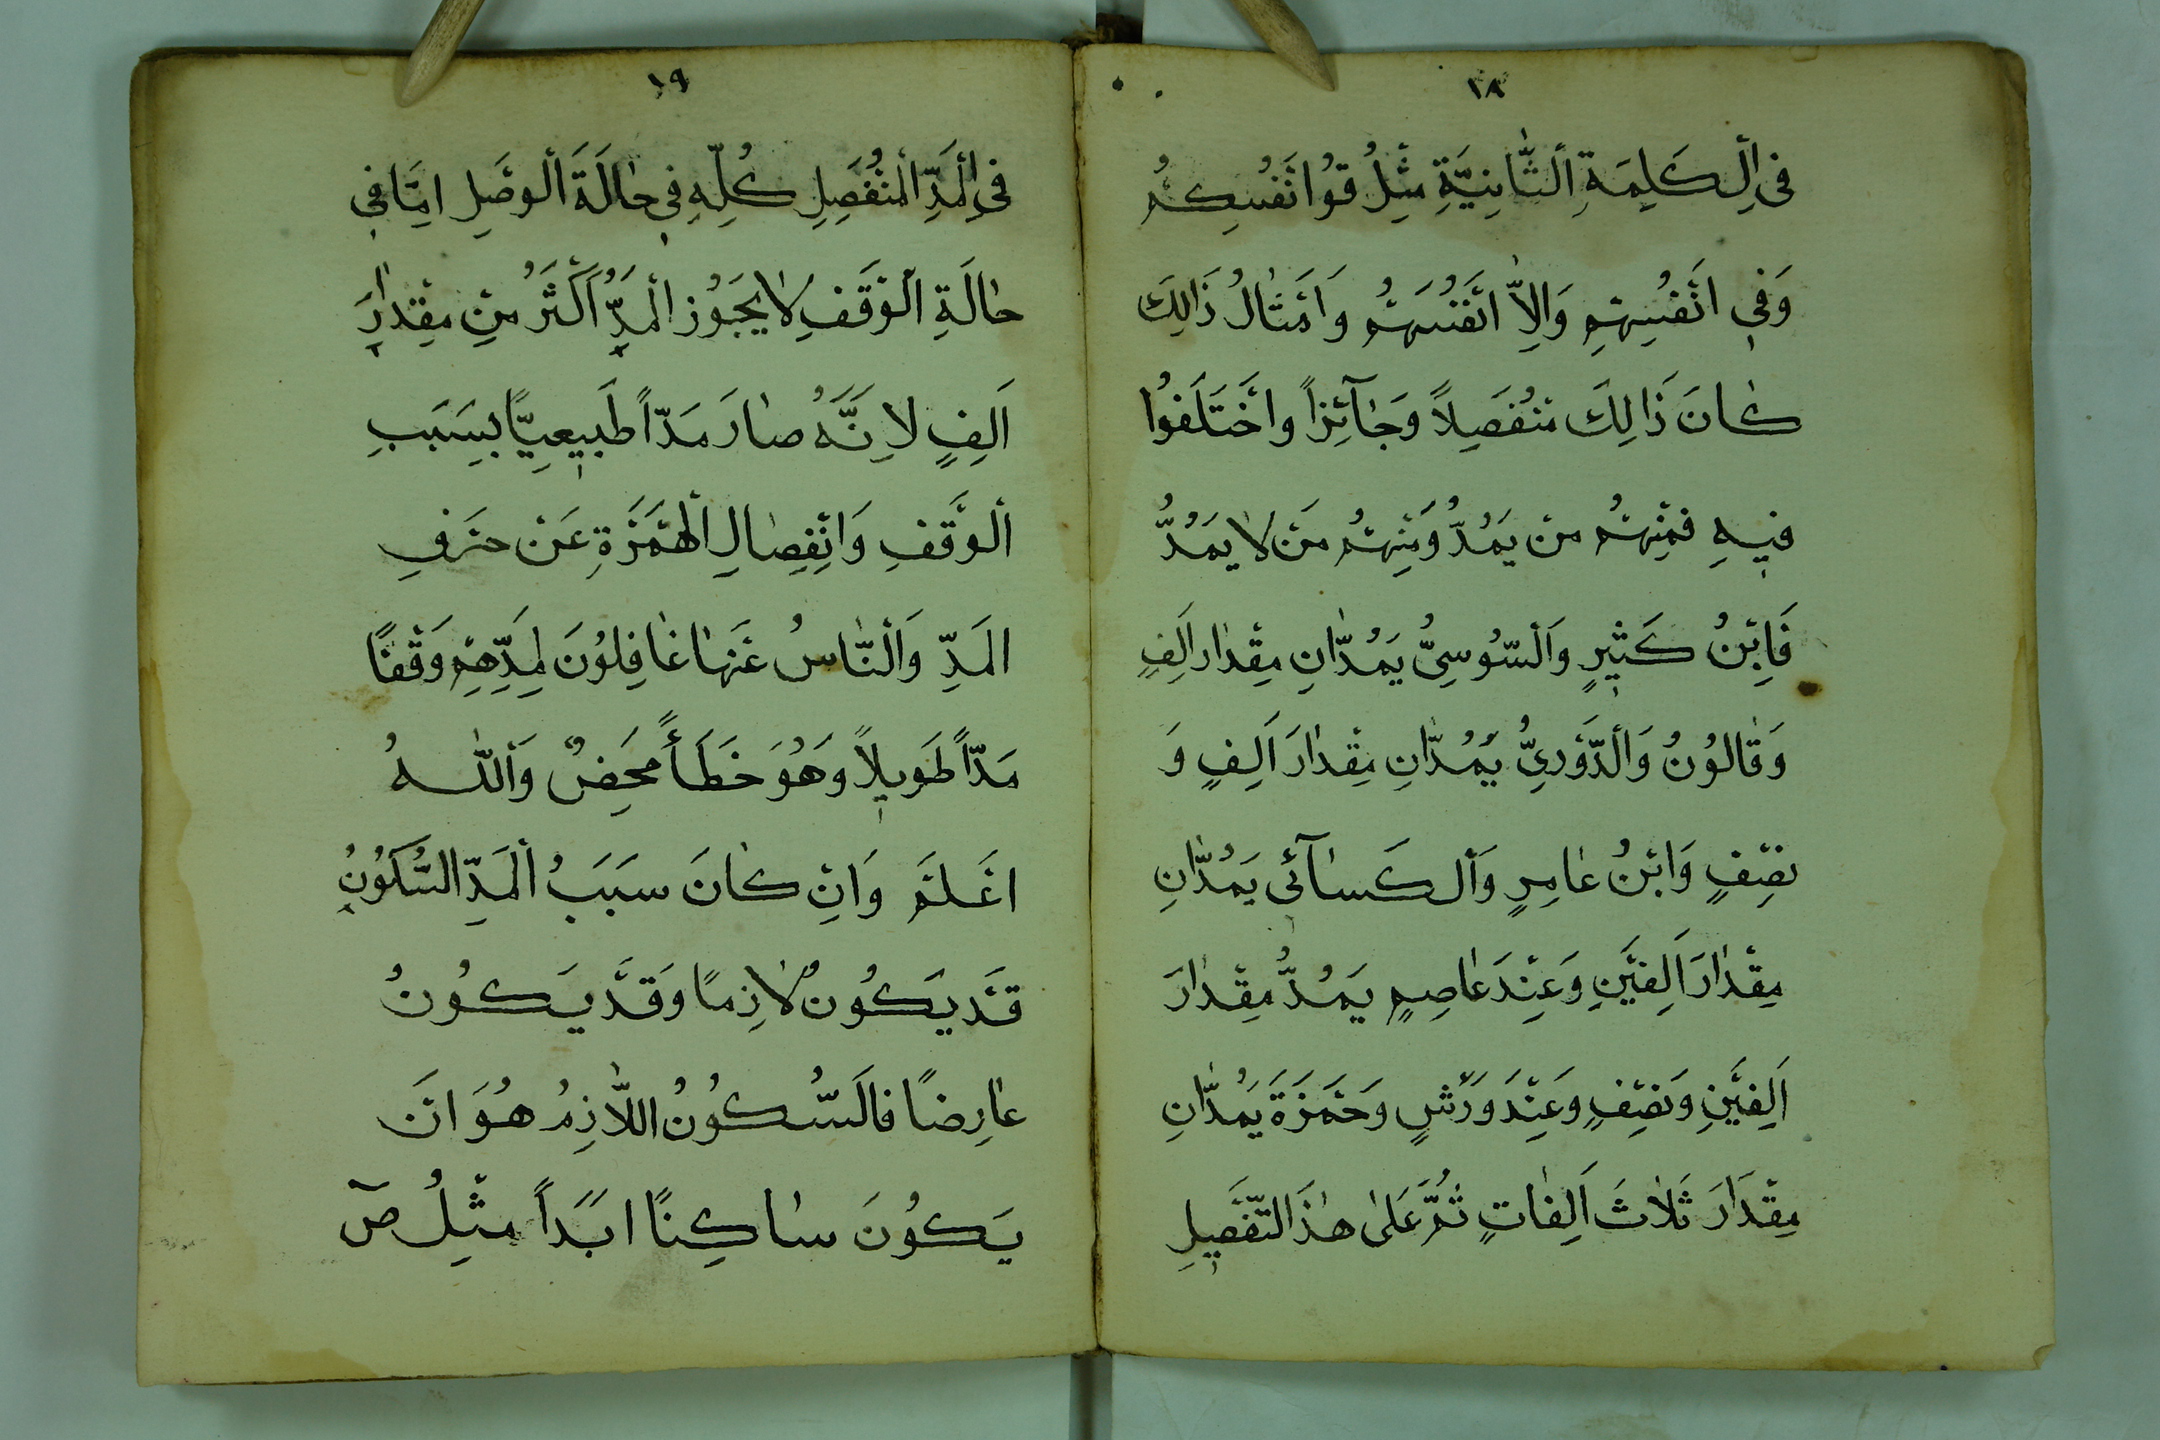 ١٨
فِى اْلكَلِمَةِ اْلثَّانِيَّةِ مِثْلُ قُوا اَنْفُسَكُمْ
وَفِى اَنْفُسِهِمْ وَاِلاَّ اَنْفُسَهُمْ وَاَمْثَالُ ذَالِكَ
كَانَ ذَالِكَ مُنْفَصِلاً وَجَآئِزاً واخْتَلَفُوا
فِيهِ فَمِنْهُمْ مَنْ يَمُدُّ وَمِنْهُمْ مَنْ لَا يَمُدُّ
فَاِبْنُ كَثِيرٍ وَاْلسُّوسِىُّ يَمُدَّانِ مِقْدَار اَلِفٍ
وَقَالُونُ وَاْلدَّوْرِىُّ يَمُدَّانِ مِقْدَارَ اَلِفٍ وَ
نِصْفٍ وَابْنُ عَامِرٍ وَاْلكَسَآئى يَمُدَّانِ
مِقْدَارَ اَلِفَيْنِ وَعِنْدَ عَاصِمٍ يَمُدُّ مِقْدَارَ
اَلِفَيْنِ وَنِصْفٍ وَعِنْدَ وَرْشٍ وَحَمْزَةَ يَمُدَّانِ
مِقْدَارَ ثَلَاثَ اَلِفَاتٍ ثُمَّ عَلَى هٰذَا التَّفْصِيلِ
١٩
فِى اْلمَدِّ اْلمُنْفَصِلِ كُلِّهِ فِى حَالَةَ اْلوَصْلِ امَّا فِى
حَالَةِ اْلوَقْفِ لَا يَجُوز اْلمَدُّ اَكْثَرُ مِنْ مِقْدَارِ
اَلِفٍ لِاَنَّهُ صَارَ مَدّاً طَبِيعِيًّا بِسَبَبِ
اْلوَقْفِ وَانْفِصَالِ اْلهَمْزَةِ عَنْ حَرْفِ
المَدِّ وَاْلنَّاسُ عَنْهَا غَافِلُونَ لِمَدِّهِمْ وَقْفًا
مَدّاً طَوِيلاً وَهُوَ خَطَأً مَحْضٌ وَاْللّٰهُ
اعْلَمْ وَاِنْ كَانَ سَبَبُ اْلمَدِّ السُّكُونُ
قَدْ يَكُونُ لَازِمًا وَقَدْ يَكُونُ
عَارِضًا فَالسُّكُونُ اللاَّزِمُ هُوَ اَنْ
يَكُونَ سَاكِنًا اَبَدَاً مِثْلُ صٓ